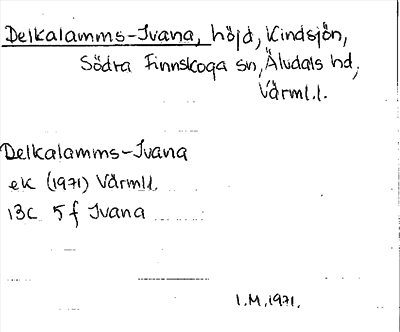 Delkalamms-Ivana, höjd, Kindsjön,
Södra Finnskoga sn, Älvdals hd,
Värml.l.
Delkalamms-Ivana
ek (1971) Värml.l.
13c 5f Ivana
I.M. 1971.